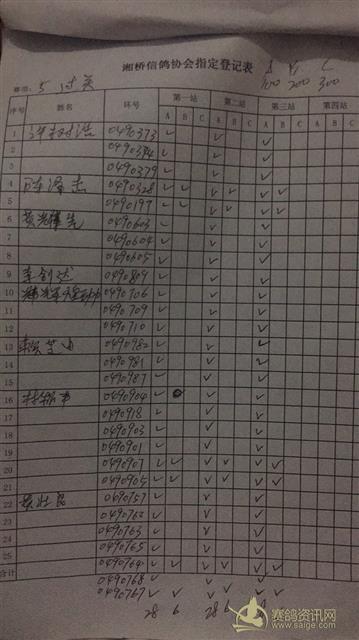 湘桥信鸽协会指定登记表
A B C
100 200 300
序号 姓名 环号 第一站 第二站 第三站 第四站
A B C A B C A B C A B C
1 0490373 ✓ ✓ ✓
2 0490374 ✓ ✓ ✓
3 0490379 ✓ ✓ ✓
4 0490328 ✓ ✓ ✓ ✓ ✓ ✓
5 0490197 ✓ ✓ ✓ ✓ ✓ ✓
6 0490603 ✓ ✓ ✓
7 0490604 ✓ ✓ ✓
8 0490605 ✓ ✓ ✓
9 李剑达 0490809 ✓ ✓ ✓
10 0490706 ✓ ✓ ✓
11 0490709 ✓ ✓ ✓
12 0490710 ✓ ✓ ✓
13 0490982 ✓ ✓ ✓
14 0490981 ✓ ✓ ✓
15 0490987 ✓ ✓ ✓
16 0490904 ✓ ✓ ✓
17 0490918 ✓ ✓ ✓
18 0490903 ✓ ✓ ✓
19 0490901 ✓ ✓ ✓
20 0490907 ✓ ✓ ✓ ✓ ✓ ✓
21 0490905 ✓ ✓ ✓ ✓ ✓ ✓
22 黄壮良 0490757 ✓ ✓ ✓
23 0490762 ✓ ✓ ✓
24 0490763 ✓ ✓ ✓
25 0490765 ✓ ✓ ✓
合计 0490764 ✓ ✓ ✓ ✓ ✓ ✓
0490768 ✓ ✓ ✓
0490767 ✓ ✓ ✓ ✓ ✓
28 6 28 6
赛鸽资讯网
www.saige.com